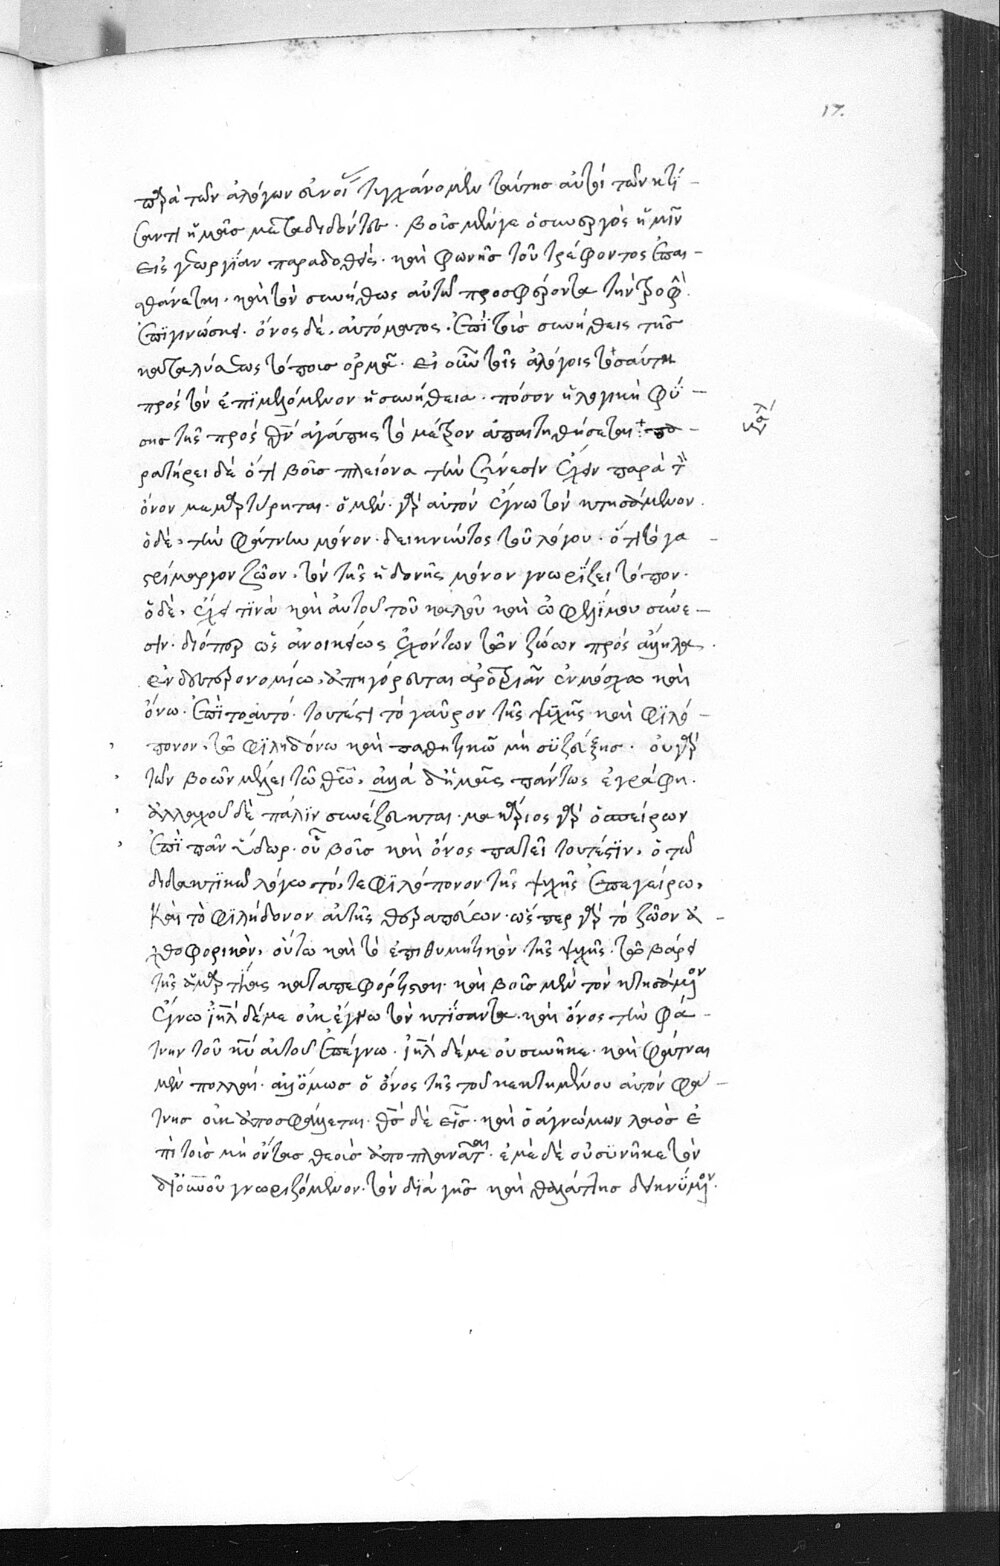 17.
παρὰ τῶν ἀλόγων εὔνοϊ τυγχάνομεν ταύτης αὐτοὶ τῶν κτί-
σαντι ἡμᾶς μεταδιδόντες. βοῦς μέν γε ὁ συνεργὸς ἡμῖν
εἰς γεωργίαν παραδοθείς. καὶ φωνῆς τοῦ τρέφοντος ἐπαι-
σθάνεται. καὶ τὸν συνήθως αὐτῶ προσφέροντα τὴν τροφὴ.
ἐπιγινώσκει. ὄνος δὲ, αὐτόματος. ἐπὶ τοὺς συνήθεις τῆς
καταλύσεως τόποις ὁρμᾶ. εἰ οὖν τοῖς ἀλόγοις τοσαύτη
πρὸς τὸν ἐπιμελόμενον ἡ συνήθεια. πόσον ἡ λογικὴ φύ-
σης τῆς πρὸς θν ἀγάπης τὸ μέτρον ἀπαιτηθήσεται
ρατήρει δὲ ὅτι βοῦς πλείονα τὴν σύνεσιν ἔχειν παρὰ τὸν
ὄνον μεμαρτύρηται. ὁ μὲν. γὰρ αὐτὸν ἔγνω τὸν κτησάμενον.
ὁ δὲ, τὴν φάτνην μόνον. δεικνύντος τοῦ λόγου. ὅτι τὸ γα-
στρίμαργον ζῶον, τὸν τῆς ἡδονῆς μόνον γνωρίζει τόπον.
ὁ δὲ, ἔχει τινὰ καὶ αὐτοῦ τοῦ καλοῦ καὶ ὠφελίμου σύνε-
σιν. διόπερ ὡς ἀνοικείως ἐχόντων τῶν ζώων πρὸς ἄλληλα.
ἐν δευτερονομίω, ἀπηγόρευται ἀροτριᾶν ἐν μόσχω καὶ
ὄνω. ἐπὶ τοαυτό. τουτέστι τὸ γαῦρον τῆς ψυχῆς καὶ φιλό-
πονον, τῶ φιληδόνω καὶ παθητικῶ μὴ συζεύξης. οὐ γὰρ
τῶν βοῶν μέλει τῶ θεῶ, ἀλλὰ δι ἡμᾶς πάντως ἐγράφη.
ἀλλαχοῦ δὲ πάλιν συνέζευκται. μακάριος γὰρ ὁ σπείρων
ἐπὶ πᾶν ὕδωρ. οὗ βοῦς καὶ ὄνος πατεῖ τουτέστιν, ὁ τῶ
διδακτικῶ λόγω τό, τε φιλόπονον τῆς ψυχῆς ἐπεγείρων,
καὶ τὸ φιλήδονον αὐτῆς θεραπεύων. ὥσπερ γὰρ τὸ ζῶον ἀ-
χθοφορικὸν, οὕτω καὶ τὸ ἐπιθυμητικὸν τῆς ψυχῆς. τῶ βάρει
τῆς ἁμαρτίας καταπεφόρτισται. καὶ βοῦς μὲν τὸν κτησάμενον
ἔγνω ἰηλ δέ με οὐκ ἔγνω τὸν κτίσαντα. καὶ ὄνος τὴν φά-
τνην τοῦ κυ αὐτοῦ ἐπέγνω. ἰηλ δέ με οὐ συνῆκε. καὶ φάτναι
μὲν πολλαί. ἀλλ ὅμως ὁ ὄνος τῆς τοῦ κεκτημένου αὐτὸν φά-
τνης οὐκ ἀποσφάλλεται. θς δὲ εἷς. καὶ ὁ ἀγνώμων λαὸς ἐ
πὶ τοὺς μὴ ὄντας θεοὺς ἀποπλανᾶται. ἐμὲ δὲ οὐ συνῆκε τὸν
δι οὐνοῦ γνωριζόμενον. τὸν διὰ γῆς καὶ θαλάττης δεικνύμενον.